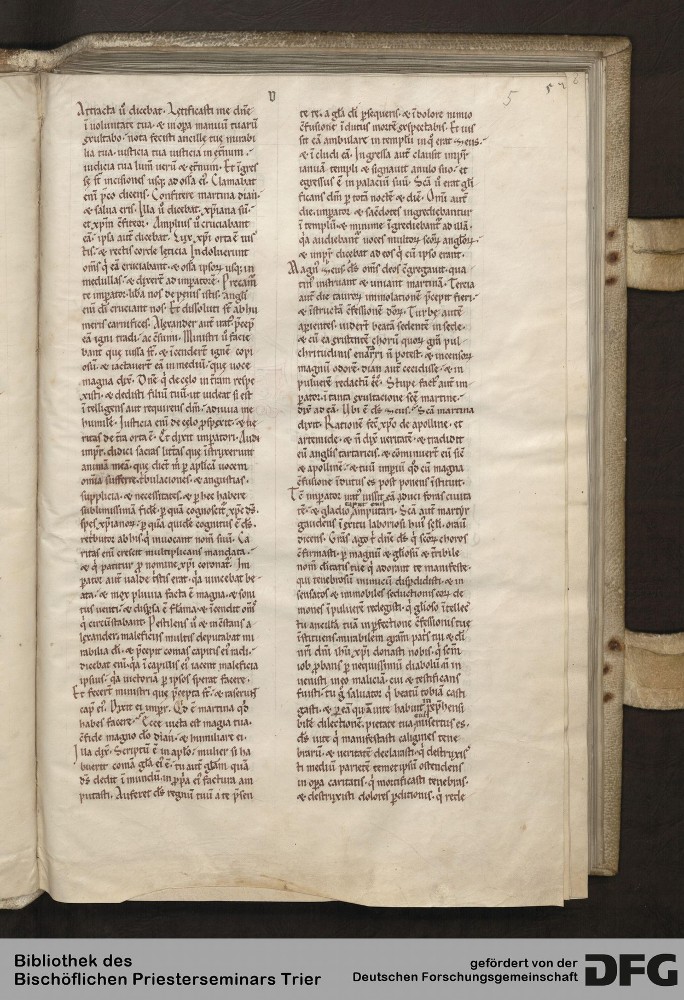 v
5
Attracta ū dicebat. Letificasti me dn̄e
ī voluntate tua. et inopa manuū tuarū
exultabo. nota fecisti ancille tue mirabi
lia tua. iusticia tua iusticia in et̄num.
iudicia tua lum̄ verū et et̄num. Et īgres
si st̄ incisiones usq; ad ossa ei⁹. Clamabat
em̄ p̄co dicens. Confitere martina dian̄
et salva eris. Illa ū dicebat. xp̄iana sū.
et xp̄m c̄fiteor. Amplius ū cruciabant
eā. ipsa aut̄ dicebat. Lux xp̄i orta ē ius
tis. et rectis corde leticia. Indoluerunt
om̄s q̄ eā cruciabant. et ossa ipsoꝝ usq; in
medullas. et dixert̄ ad imperatorē. Precam̄
te imp̄ator. lib̄a nos de penis istis. angli
em̄ dī cruciant nos. Et dissoluti st̄ ab hu
meris carnifices. Alexander aut̄ irat⁹ p̄cep̄
eā igni tradi. ac c̄sumi. Ministri ū facie
bant que iussa st̄. et īcendert̄ ignē copi
osū. et iactavert̄ eā in mediū. que voce
magna dix̄. Dn̄e q̄ de celo in t̄ram respe
xisti. et dedisti filiū tuū. ut videat si est
ītelligens aut requirens dm̄. adiuva me
humilē. Justicia em̄ de celo p̄spexit. et ve
ritas de t̄ra orta ē. Et dixit imp̄atori. Audi
imp̄r. didici sacras litt̄as que īstruxerunt
animā meā. que dic̄t m̄ p aplicā vocem
omia sufferre. t̄bulationes. et angustias.
supplicia. et necessitates. et p hec habere
sublimissimā fidē. p quā cognoscit̄ xp̄c ds̄.
spes xp̄ianoꝝ. p quā quide cognitus ē ds̄.
retbutor ab his q̄ invocant nom̄ suū. Ca
ritas em̄ crescit multiplicans mandata.
et q̄ patitur p nomine xp̄i coronat̄. Im
p̄ator aut̄ valde t̄stis erat. qa vincebat be
ata. et mox pluvia facta ē magna. et soni
tus venti. et disp̄sa ē flāma. et īcendit om̄s
q̄ circūstabant. Pestilens ū et in̄sitans a
lexander. maleficiis multis deputabat mi
rabilia dī. et p̄cepit comas capitis ei⁹ radi.
dicebat em̄. q̄a ī capillis ei⁹ iacent maleficia
ipsius. q̄a victoriā p ipsos sperat facere.
Et fecert̄ ministri que p̄cepta st̄. et raserūt
cap̄ ei⁹. Dixit ei imp̄r. Qd̄ ē martina qd̄
habes facere. Ecce victa est magia tua.
c̄fide magno dō dian̄. et humiliare ei.
Illa dix̄. Scriptū ē in aplo. mulier si ha
buerit comā gla ei⁹ ē. tu aut̄ glam quā
ds̄ dedit ī mundū. in p̄pa ei⁹ factura am
putasti. Auferet ds̄ regnū tuū a te p̄sen
te te. a gla dī p̄sequeris. et ī dolore nimio
c̄fusione īdutus mortē exspectabis. Et ius
sit eā ambulare in templū in q̄ erat zeus.
et īcludi eā. Ingressa aut̄ clausit imp̄r
ianuā templi et signavit anulo suo. et
egressus ē in palaciū suū. Scā ū erat gli
ficans dm̄ p totā noctē et diē. Om̄i aut̄
die imp̄ator. et sac̄dotes ingrediebantur
ī templū. et minime īgrediebant̄ ad illā.
q̄a audiebant voces multoꝝ scōꝝ angloꝝ.
et imp̄r dicebat ad eos q̄ cū ipso erant.
Magn⁹ zeus ds̄ om̄s deos c̄gregavit. qua
tin⁹ instruant et vivant martinā. Tercia
aut̄ die tauroꝝ immolationē p̄cepit fieri.
et īstructā c̄fessionē d̄oꝝ. Turbe autē
aꝑientes. vidert̄ beatā sedentē in sede.
et cū ea existente chorū quoꝝ gm̄ pul
chritudinis enarri n̄ potest. et incensoꝝ
magnū odorē. dian aut̄ cecidisse. et in
pulverē redactū eē. Stupefact⁹ aut̄ im
p̄ator. ī tanta exultacione scē martine.
dix̄ ad eā. Ubi ē ds̄ zeus. Scā martina
dixit. Rationē fec̄ xp̄o de apolline. et
artemide. et n̄ dix̄ veritatē. et tradidit
eū anglis tartareis. et cōminvert̄ eū sic̄
et apollinē. et tuū imp̄iū qd̄ cū magna
c̄fusione īdutus es post ponens īstruit.
Tc̄ imp̄ator irat⁹ iussit eā adduci foras civita
tē. et gladio caput ei⁹ amputari. Scā aut̄ martyr
gaudens
dicens. Gras ago t̄ dn̄e ds̄ q̄ scōꝝ choros
c̄firmasti. p magnū et gliosū et t̄ribile
nom̄ ditatis tue q̄ adorant te manifeste.
qui tenebrosū inimicū disp̄didisti. et in
sensatos et immobiles seductionis eoꝝ de
mones ī pulverē redegisti. q̄ glioso ītellec̄
tu ancillā tuā in p̄fectione c̄fessionis tue
īstruens. mirabilem gram̄ pat̄s tui et dī
nr̄i dn̄i ihū xp̄i donasti nobis. q̄ sem̄
iob p̄bans p nequissimū diabolū. n̄ in
venisti in eo maliciā. cui et testificans
fuisti. tu g̊ salvator q̄ beatū tobiā casti
gasti.
bile dilectionē. pietate tua misertus es.
ds̄ vite q̄ manifestasti caligines tene
braꝝ. et veritatē declarasti. q̄ destruxis
ti mediū parietē temet ipsū ostendens
in opa caritatis. q̄ mortificasti tenebras.
et destruxisti dolores p̄ditionis. q̄ rede
Bibliothek des
Bischöflichen Priesterseminars Trier
gefördert von der
Deutschen Forschungsgemeinschaft
DFG